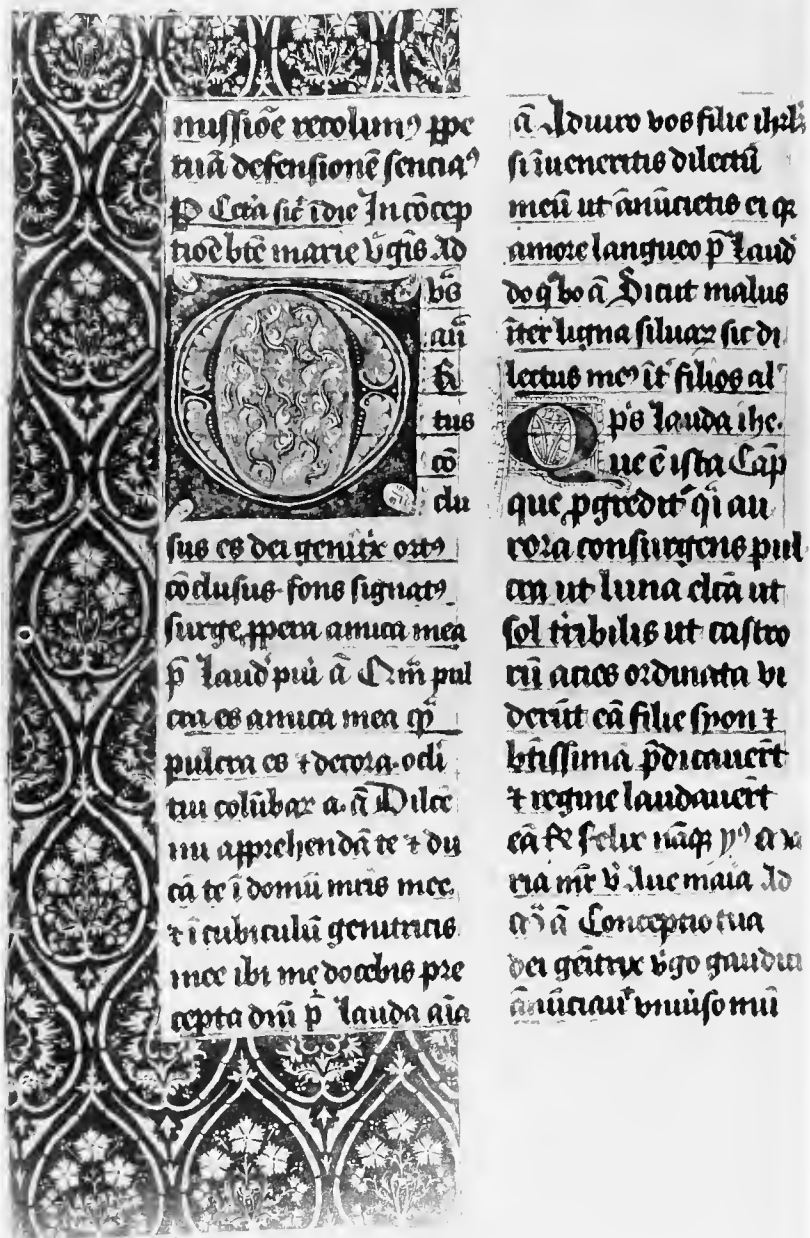 missiōe recolim⁹ ꝑpe
tuā defensionē sencia⁹
Cetā sic̄ īdie In cōcep
tiōe btē marie v̄gīs Ad
vs̄
aū
tus
cō
clu
sus es dei genitx̄ ort⁹
cōclusus fons signat⁹
surge ꝓpera amica mea
p̄ laud piū ā Om̄ pul
cra es amica mea qm̄
pulcra es ⁊ decora oc̄li
tui colūbaꝝ a. ā Dilce
mi apprehendā te ⁊ du
cā te ī domū mr̄is mee
⁊ ī cubiculū genitricis
mee ibi me docebis pre
cepta dnī p̄ lauda aīa
ā Adiuro vos filie ihrl̄
si īueneritis dilectū
meū ut ānūcietis ei qꝛ
amore langueo p̄ laud
do qͥ bo ā Sicut malus
īter ligna siluaꝝ sic di
lectus me⁹ īt̄ filios al
p̄s lauda ihe.
Que ē ista Cap̄
que ꝓgredit̄ qͥi au
rora consurgens pul
cra ut luna elcā ut
sol tribilis ut castro
rū acies ordinata vi
derūt eā filie syon ⁊
btissimā p̄dicauer̄t
⁊ regine laudauer̄t
eā ℟ felix nāqꝫ
ria mr̄ v̄ Aue maīa Ad
ā Conceptio tua
dei geītrix v̄go gaudiū
ānūciau̅ vniūso mū